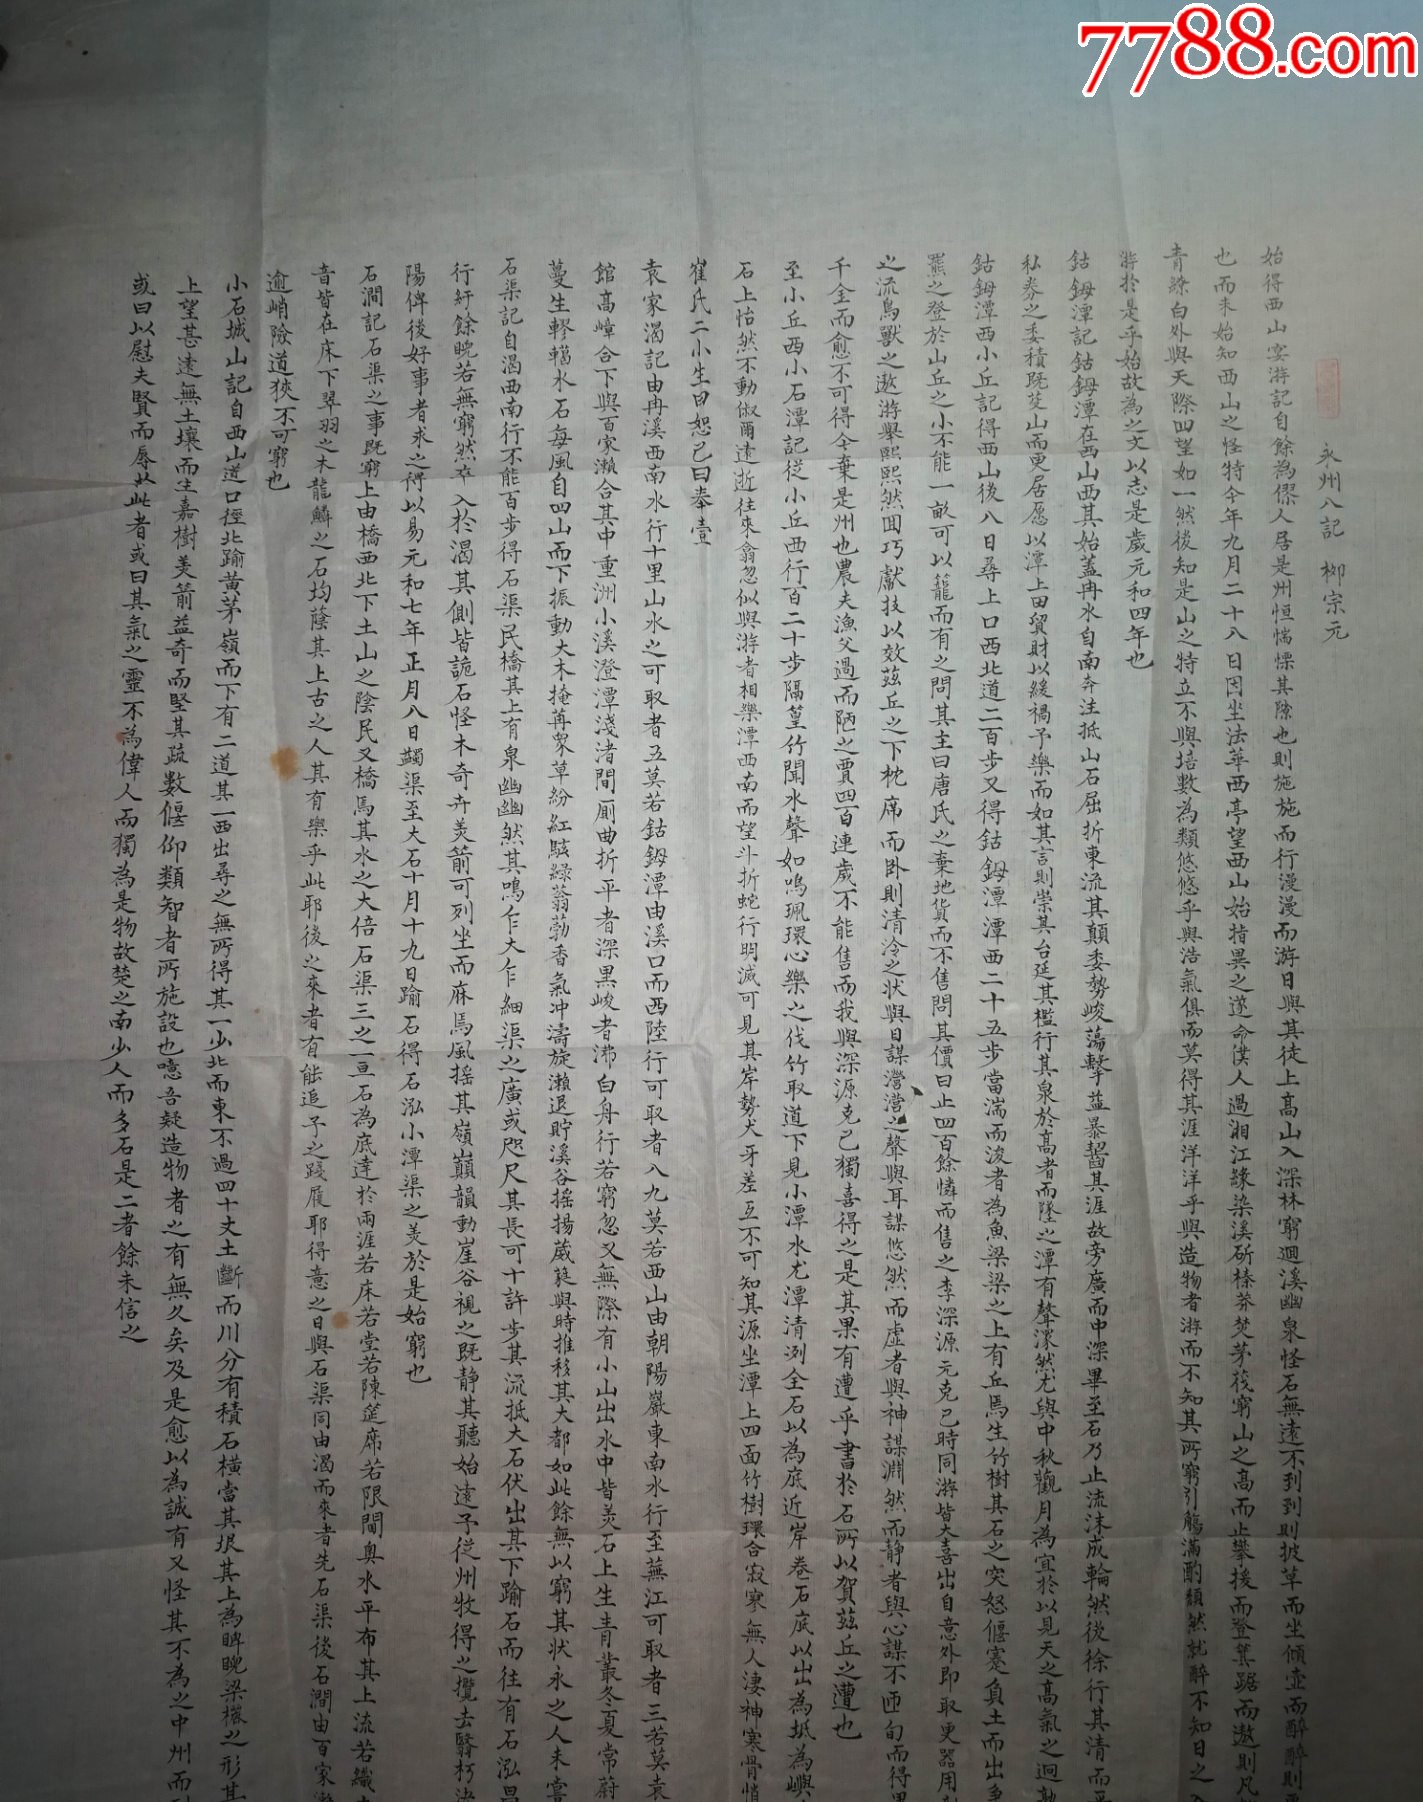 7788.com
永州八記 柳宗元
始得西山宴游記自餘為僇人居是州恒惴慄其隙也則施施而行漫漫而游日與其徒上高山入深林窮迴溪幽泉怪石無遠不到到則披草而坐傾壺而醉醉則
也而未始知西山之怪特今年九月二十八日因坐法華西亭望西山始指異之遂命僕人過湘江緣染溪斫榛莽焚茅筏窮山之高而止攀援而登箕踞而遨則凡
青繚白外與天際四望如一然後知是山之特立不與培塿為類悠悠乎與浩氣俱而莫得其涯洋洋乎與造物者游而不知其所窮引觴滿酌頹然就醉不知日之入
游於是乎始故為之文以志是歲元和四年也
鈷鉧潭記鈷鉧潭在西山西其始蓋冉水自南奔注抵山石屈折東流其顛委勢峻蕩擊益暴齧其涯故旁廣而中深畢至石乃止流沫成輪然後徐行其清而平
私券之委積既芟山而更居愿以潭上田貿財以緩禍予樂而如其言則崇其台延其檻行其泉於高者而墜之潭有聲潀然尤與中秋觀月為宜於以見天之高氣之迥
鈷鉧潭西小丘記得西山後八日尋上口西北道二百步又得鈷鉧潭潭西二十五步當湍而浚者為魚梁梁之上有丘焉生竹樹其石之突怒偃蹇負土而出爭
羆之登於山丘之小不能一畝可以籠而有之問其主曰唐氏之棄地貨而不售問其價曰止四百餘憐而售之李深源元克己時同游皆大喜出自意外即取更器用
之流鳥獸之遨游舉熙熙然回巧獻技以效茲丘之下枕席而臥則清泠之狀與目謀瀯瀯之聲與耳謀悠然而虛者與神謀淵然而靜者與心謀不匝旬而得
千金而愈不可得今棄是州也農夫漁父過而陋之賈四百連歲不能售而我與深源克己獨喜得之是其果有遭乎書於石所以賀茲丘之遭也
至小丘西小石潭記從小丘西行百二十步隔篁竹聞水聲如鳴珮環心樂之伐竹取道下見小潭水尤潭清洌全石以為底近岸卷石底以出為坻為嶼
石上怡然不動俶爾遠逝往來翕忽似與游者相樂潭西南而望斗折蛇行明滅可見其岸勢犬牙差互不可知其源坐潭上四面竹樹環合寂寥無人淒神寒骨悄
崔氏二小生曰恕己曰奉壹
袁家渴記由冉溪西南水行十里山水之可取者五莫若鈷鉧潭由溪口而西陸行可取者八九莫若西山由朝陽巖東南水行至蕪江可取者三若莫袁
館高嶂合下與百家瀨合其中重洲小溪澄潭淺渚間廁曲折平者深黑峻者沸白舟行若窮忽又無際有小山出水中皆美石上生青叢冬夏常蔚
蔓生轇轕水石每風自四山而下振動大木掩苒眾草紛紅駭綠蓊勃香氣沖濤旋瀨退貯溪谷搖揚葳蕤與時推移其大都如此餘無以窮其狀永之人未嘗
石渠記自渴西南行不能百步得石渠民橋其上有泉幽幽然其鳴乍大乍細渠之廣或咫尺其長可十許步其流抵大石伏出其下踰石而往有石泓昌
行紆餘睨若無窮然卒入於渴其側皆詭石怪木奇卉美箭可列坐而庥焉風搖其嶺巔韻動崖谷視之既靜其聽始遠予從州牧得之攬去翳朽決
陽俾後好事者求之得以易元和七年正月八日蠲渠至大石十月十九日踰石得石泓小潭渠之美於是始窮也
石澗記石渠之事既窮上由橋西北下土山之陰民又橋焉其水之大倍石渠三之一亘石為底達於兩涯若床若堂若陳筵席若限閫奧水平布其上流若織
音皆在床下翠羽之木龍鱗之石均蔭其上古之人其有樂乎此耶後之來者有能追予之踐履耶得意之日與石渠同由渴而來者先石渠後石澗由百家瀨
逾峭險道狹不可窮也
小石城山記自西山道口徑北踰黃茅嶺而下有二道其一西出尋之無所得其一少北而東不過四十丈土斷而川分有積石橫當其垠其上為睥睨梁欐之形其
上望甚遠無土壤而生嘉樹美箭益奇而堅其疏數偃仰類智者所施設也噫吾疑造物者之有無久矣及是愈以為誠有又怪其不為之中州而
或曰以慰夫賢而辱於此者或曰其氣之靈不為偉人而獨為是物故楚之南少人而多石是二者餘未信之